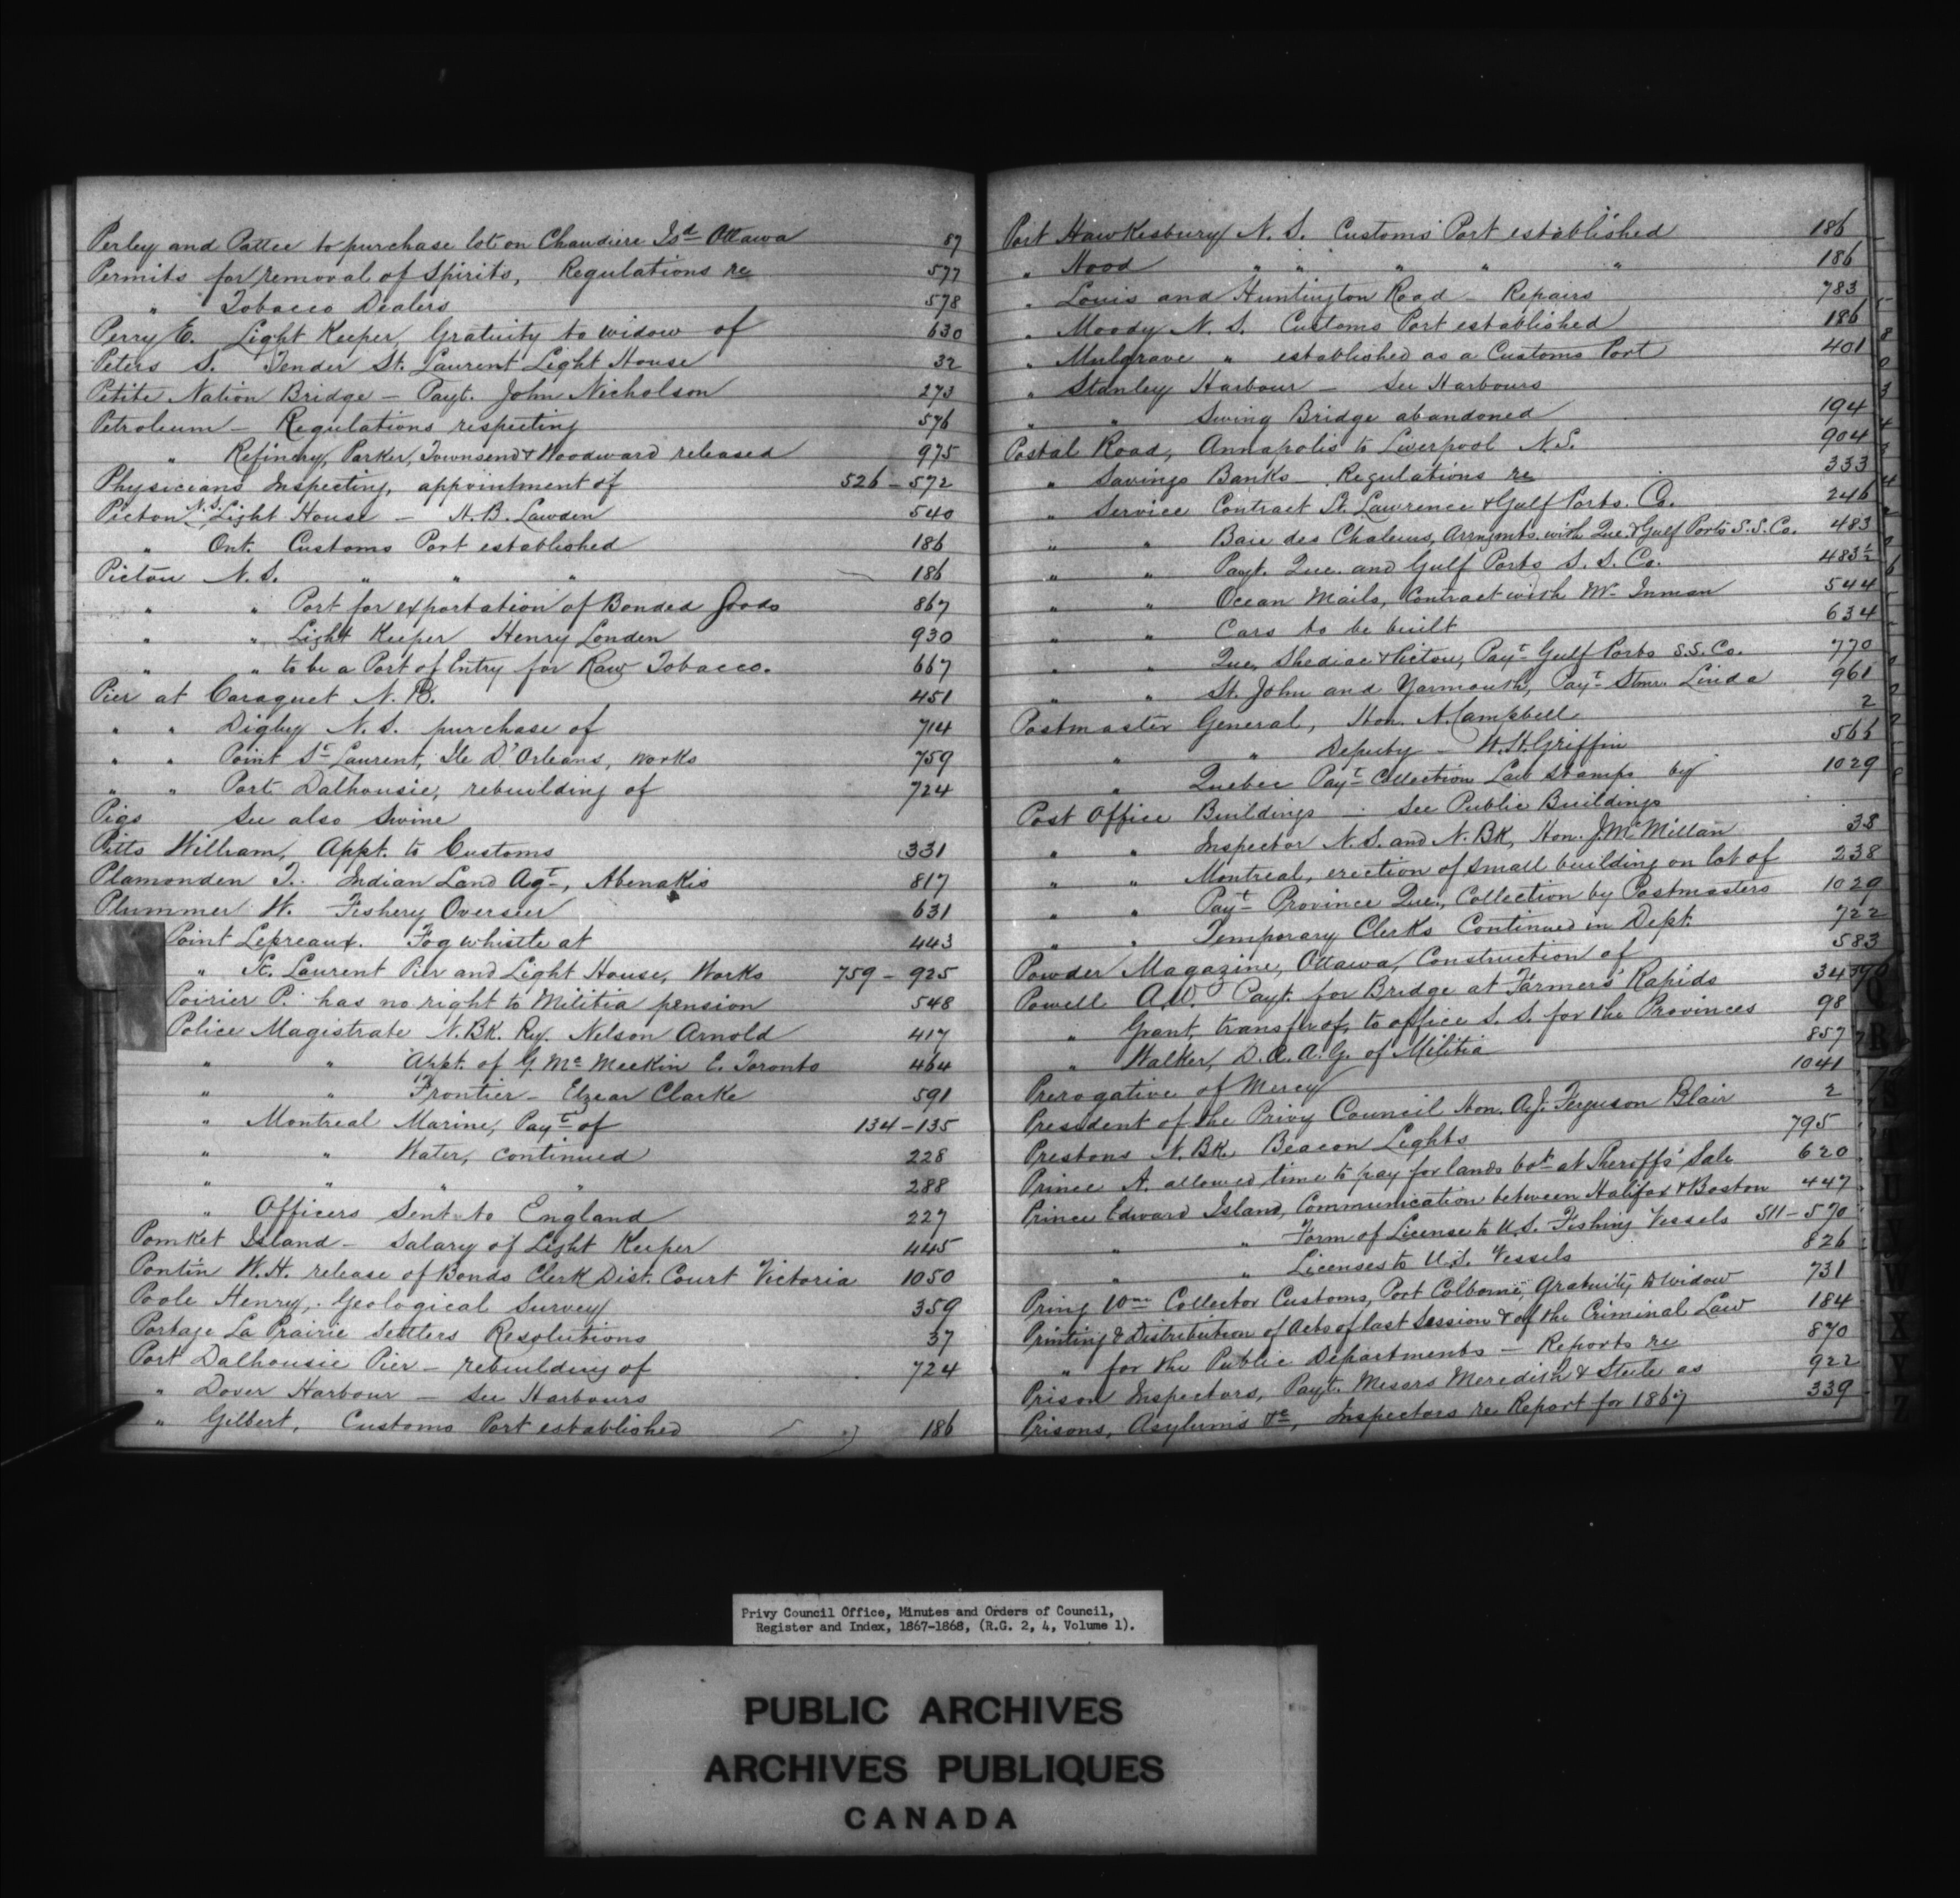 Perley and Pattee to purchase lot on Chaudiere Isd Ottawa 87
Permits for removal of Spirits, Regulations re 577
" Tobacco Dealers 578
Perry E. Light Keeper, Gratuity to widow of 630
Peters S. Tender St. Laurent Light House 32
Petite Nation Bridge - Payt. John Nicholson 273
Petroleum - Regulations respecting 576
" Refinery, Parker, Townsend & Woodward released 975
Physicians Inspecting, appointment of 526 - 572
Picton N.S. Light House - H. B. Lawden 540
" Ont. Customs Port established 186
Pictou N. S. " " " 186
" " Port for exportation of Bonded Goods 867
" " Light Keeper Henry Londen 930
" " to be a Port of Entry for Raw Tobacco. 667
Pier at Caraquet N. B. 451
" " Digby N. S. purchase of 714
" " Point St Laurent, Ile D'Orleans, works 759
" " Port Dalhousie, rebuilding of 724
Pigs See also Swine
Pitts William, Appt. to Customs 331
Plamonden T. Indian Land Agt, Abenakis 817
Plummer W. Fishery Overseer 631
Point Lepreaux. Fog whistle at 443
" St. Laurent Pier and Light House, Works 759 - 925
Poirier P. has no right to Militia pension 548
Police Magistrate N. Bk. Ry. Nelson Arnold 417
" " Appt. of G. Mc Meckin E. Toronto 464
" " Frontier - Elzear Clarke 591
" Montreal Marine, Payt of 134-135
" " Water, continued 228
" " " " 288
" Officers Sent to England 227
Pomket Island - Salary of Light Keeper 445
Pontin W. H. release of Bonds Clerk Dist. Court Victoria 1050
Poole Henry, Geological Survey 359
Portage La Prairie Settlers Resolutions 37
Port Dalhousie Pier - rebuilding of 724
" Dover Harbour - See Harbours
" Gilbert, Customs Port established 186
Port Hawkesbury N. S. Customs Port established 186
" Hood " " " " " 186
" Louis and Huntington Road - Repairs 783
" Moody N. S. Customs Port established 186
" Mulgrave " established as a Customs Port 401
" Stanley Harbour - See Harbours
" " Swing Bridge abandoned 194
Postal Road, Annapolis to Liverpool N.S. 904
" Savings Banks - Regulations re 333
" Service Contract St. Lawrence & Gulf Ports. Co. 246
" " Baie des Chaleurs, Arrngmts. with Que. & Gulf Ports S.S. Co. 483
" " Payt. Que. and Gulf Ports S. S. Co. 483½
" " Ocean Mails, Contract with Wm Inman 544
" " Cars to be built 634
" " Que, Shediac & Pictou, Payt Gulf Ports S.S. Co. 770
" " St. John and Yarmouth, Payt Stmr. Linda 961
Postmaster General, Hon. A. Campbell 2
" " Deputy - W. H. Griffin 565
" Quebec Payt Collection Law Stamps by 1029
Post Office Buildings - See Public Buildings
" " Inspector N. S. and N. Bk, Hon. J. McMillan 38
" " Montreal, erection of small building on lot of 238
" " Payt Province Que., Collection by Postmasters 1029
" " Temporary Clerks Continued in Dept. 722
Powder Magazine, Ottawa, Construction of 583
Powell A. W. Payt. for Bridge at Farmer's Rapids 343
" Grant, transfer of, to office S. S. for the Provinces 98
" Walker, D. A. A. G. of Militia 857
Prerogative of Mercy 1041
President of the Privy Council Hon. A. J. Ferguson Blair 2
Prestons N. Bk. Beacon Lights 795
Prince A. allowed time to pay for lands bot at Sheriffs' Sale 620
Prince Edward Island, Communication between Halifax & Boston 447
" " Form of License to U. S. Fishing Vessels 511-570
" " Licenses to U. S. Vessels 826
Pring Wm Collector Customs, Port Colborne, Gratuity to Widow 731
Printing & Distribution of Acts of last Session & of the Criminal Law 184
" for the Public Departments - Reports re 870
Prison Inspectors, Payt. Messrs Meredith & Steele as 922
Prisons, Asylums &c, Inspectors re Report for 1867 339
Q
R
S
W
X
Y
Z
Privy Council Office, Minutes and Orders of Council,
Register and Index, 1867-1868, (R.G. 2, 4, Volume 1).
PUBLIC ARCHIVES
ARCHIVES PUBLIQUES
CANADA